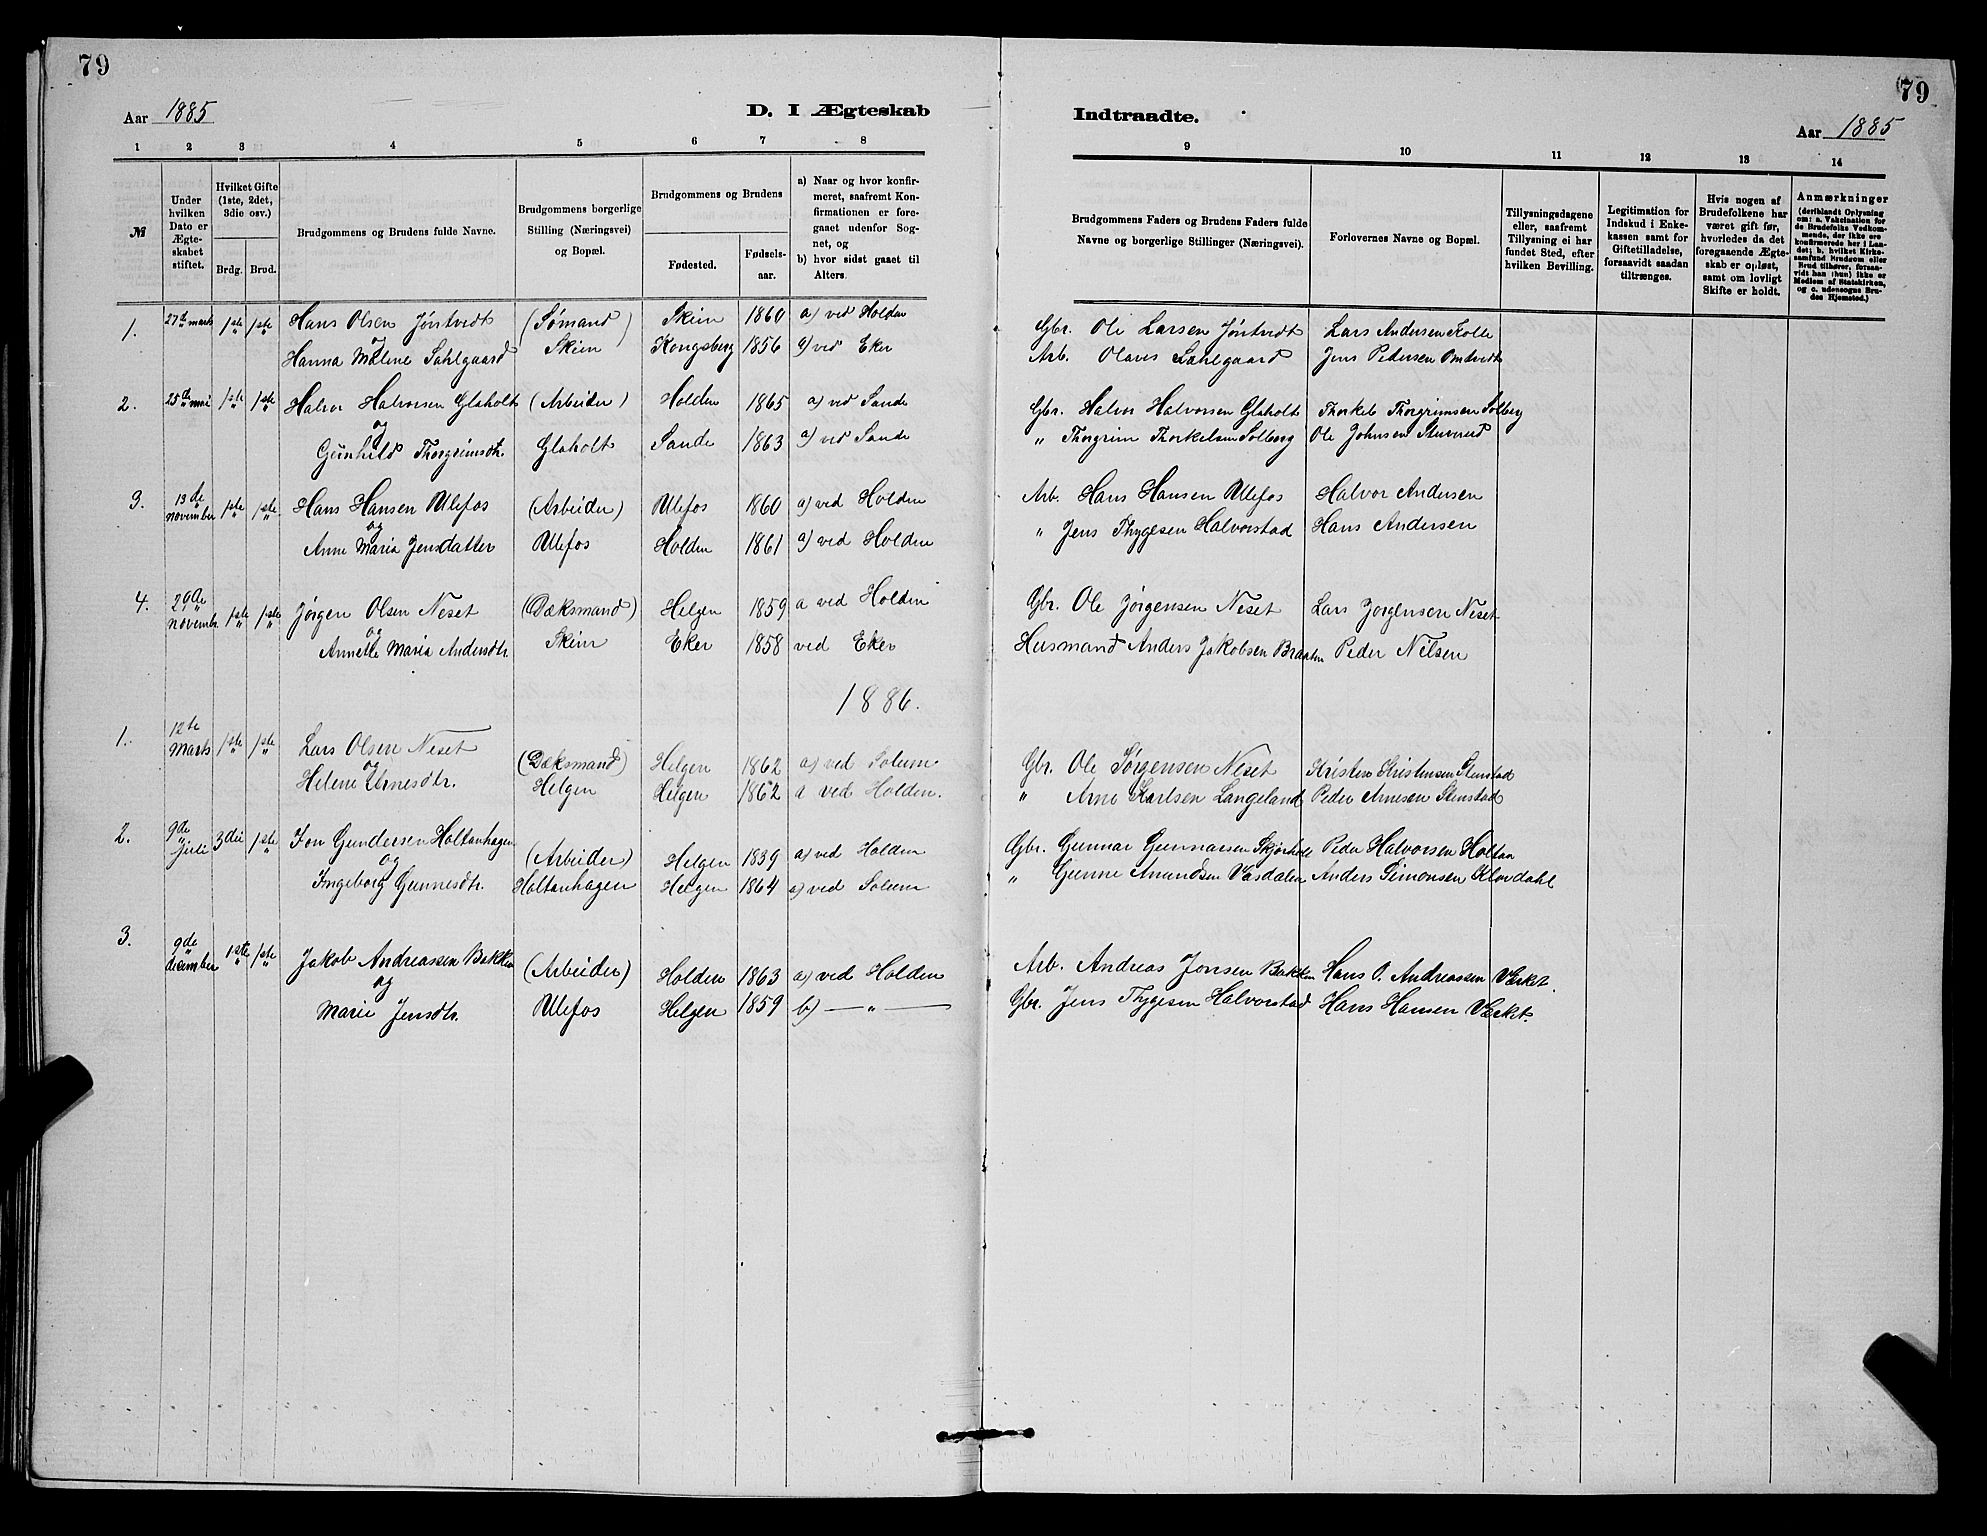 79
79
Aar 1885
D. I Ægteskab
Indtraadte.
Aar 1885
1 2 3 4 5 6 7 8
9 10 11 12 13 14
№
Under hvilken Dato er Ægteskabet stiftet.
Hvilket Gifte (1ste, 2det, 3die osv.)
Brdg. Brud.
Brudgommens og Brudens fulde Navne.
Brudgommens borgerlige Stilling (Næringsvei) og Bopæl.
Brudgommens og Brudens
Fødested.
Fødselsaar.
a) Naar og hvor konfirmeret, saafremt Konfirmationen er foregaaet udenfor Sognet, og
b) hvor sidst gaaet til Alters.
Brudgommens Faders og Brudens Faders fulde Navne og borgerlige Stillinger (Næringsvei).
Forlovernes Navne og Bopæl.
Tillysningsdagene eller, saafremt Tillysning ei har fundet Sted, efter hvilken Bevilling.
Legitimation for Indskud i Enkekassen samt for Giftetilladelse, forsaavidt saadan tiltrænges.
Hvis nogen af Brudefolkene har været gift før, hvorledes da det foregaaende Ægteskab er opløst, samt om lovligt Skifte er holdt.
Anmærkninger (deriblandt Oplysning om: a. Vakcination for de Brudefolks Vedkommende, der ikke ere konfirmerede her i Landet; b. hvilket Kirkesamfund Brudgom eller Brud tilhører, forsaavidt han (hun) ikke er Medlem af Statskirken, og c. udensogns Brudes Hjemsted.)
1. 27de marts 1ste 1ste Hans Olsen Jøntvedt (Sømand) Skien 1860 a) ved Holden Gbr. Ole Larsen Jøntvedt Lars Andersen Kolle
og
Hanna Malene Sahlgaard Skien Kongsberg 1856 a) ved Eker Arb. Olaves Sahlgaard Jens Pedersen Omtvedt
2. 25de mai 1ste 1ste Halvor Halvorsen Glaholt (Arbeider) Holden 1865 a) ved Sande Gbr. Halvor Halvorsen Glaholt Thorkel Thorgrimsen Solberg
og
Gunhild Thorgrimsdtr. Glaholt Sande 1863 a) ved Sande " Thorgrim Thorkelsen Solberg Ole Johnsen
3. 13de november 1ste 1ste Hans Hansen Ulefos (Arbeider) Ulefos 1860 a) ved Holden Arb. Hans Hansen Ulefos Halvor Andersen
og
Anne Maria Jensdatter Ulefos Holden 1861 a) ved Holden " Jens Thygesen Halvorstad Hans Andersen
4. 20de novembr. 1ste 1ste Jørgen Olsen Neset (Dæksmand) Helgen 1859 a ved Holden Gbr. Ole Jørgensen Neset Lars Jørgensen Neset
og
Annette Maria Andersdtr. Skien Eker 1858 ved Eker Husmand Anders Jakobsen Braaten Peder Nilsen
1886.
1. 12te Marts 1ste 1ste Lars Olsen Neset (Dæksmand) Helgen 1862 a) ved Solum Gbr. Ole Jørgensen Neset Kristen Kristensen Stenstad
og
Helene Arnesdtr. Helgen Helgen 1862 a ved Holden. " Arne Karlsen Langeland Peder Arnesen Stenstad
2. 9de juli 3die 1ste Jon Gundersen Holtanhagen (Arbeider) Helgen 1839 a) ved Holden Gbr. Gunnar Gunnarsen Peder Halvorsen Holtan
og
Ingeborg Gunnesdtr. Holtanhagen Helgen 1864 a) ved Solum " Gunne Amundsen Vasdalen Anders Simonsen Klovdahl
3. 9de december 1ste 1ste Jakob Andreassen Bakken (Arbeider) Holden 1863 a) ved Holden Arb. Andreas Jonsen Bakken Hans O. Andreassen Værket.
og
Marie Jensdtr. Ulefos Helgen 1859 b) — " — Gbr. Jens Thygesen Halvorstad Hans Hansen Værket.